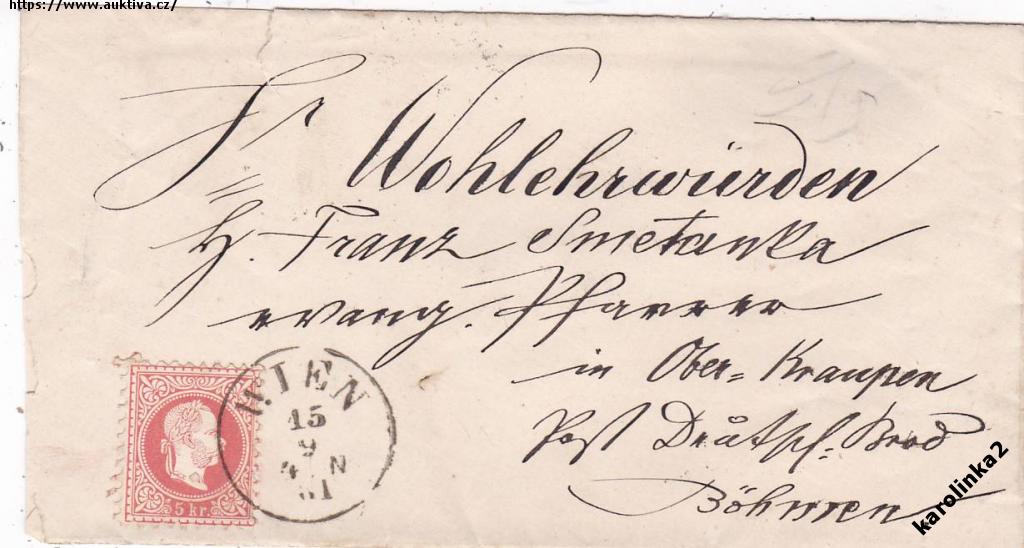 https://www.auktiva.cz/
Sr Wohlehrwürden
H. Franz Smetanka
evang. Pfarrer
in Ober-Kraupen
Post Deutsch-Brod
Böhmen
WIEN
15
9
4 N
81
5 kr.
karolinka2